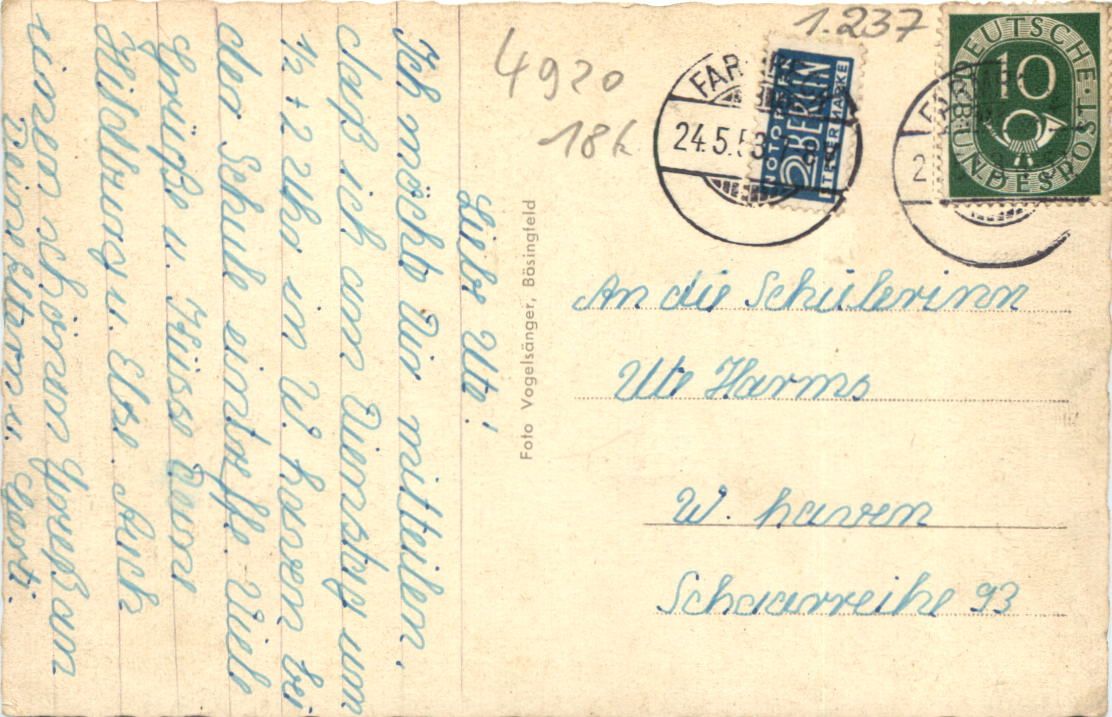 Liebe Ute!
Ich möchte Dir mitteilen,
daß ich am Dienstag um
1/2 2 Uhr in W. haven bei
der Schule eintreffe. Viele
Grüße u. Küsse Deine
Hildburg u. Else. Auch
einen schönen Gruß an
Deine Eltern u.
Foto Vogelsänger, Bösingfeld
4920
18k
1.237
24.5.53
NOTOPFER
2 BERLIN
STEUERMARKE
DEUTSCHE
10
BUNDESPOST
An die Schülerinn
Ute Harms
W. haven
Schaarreihe 93